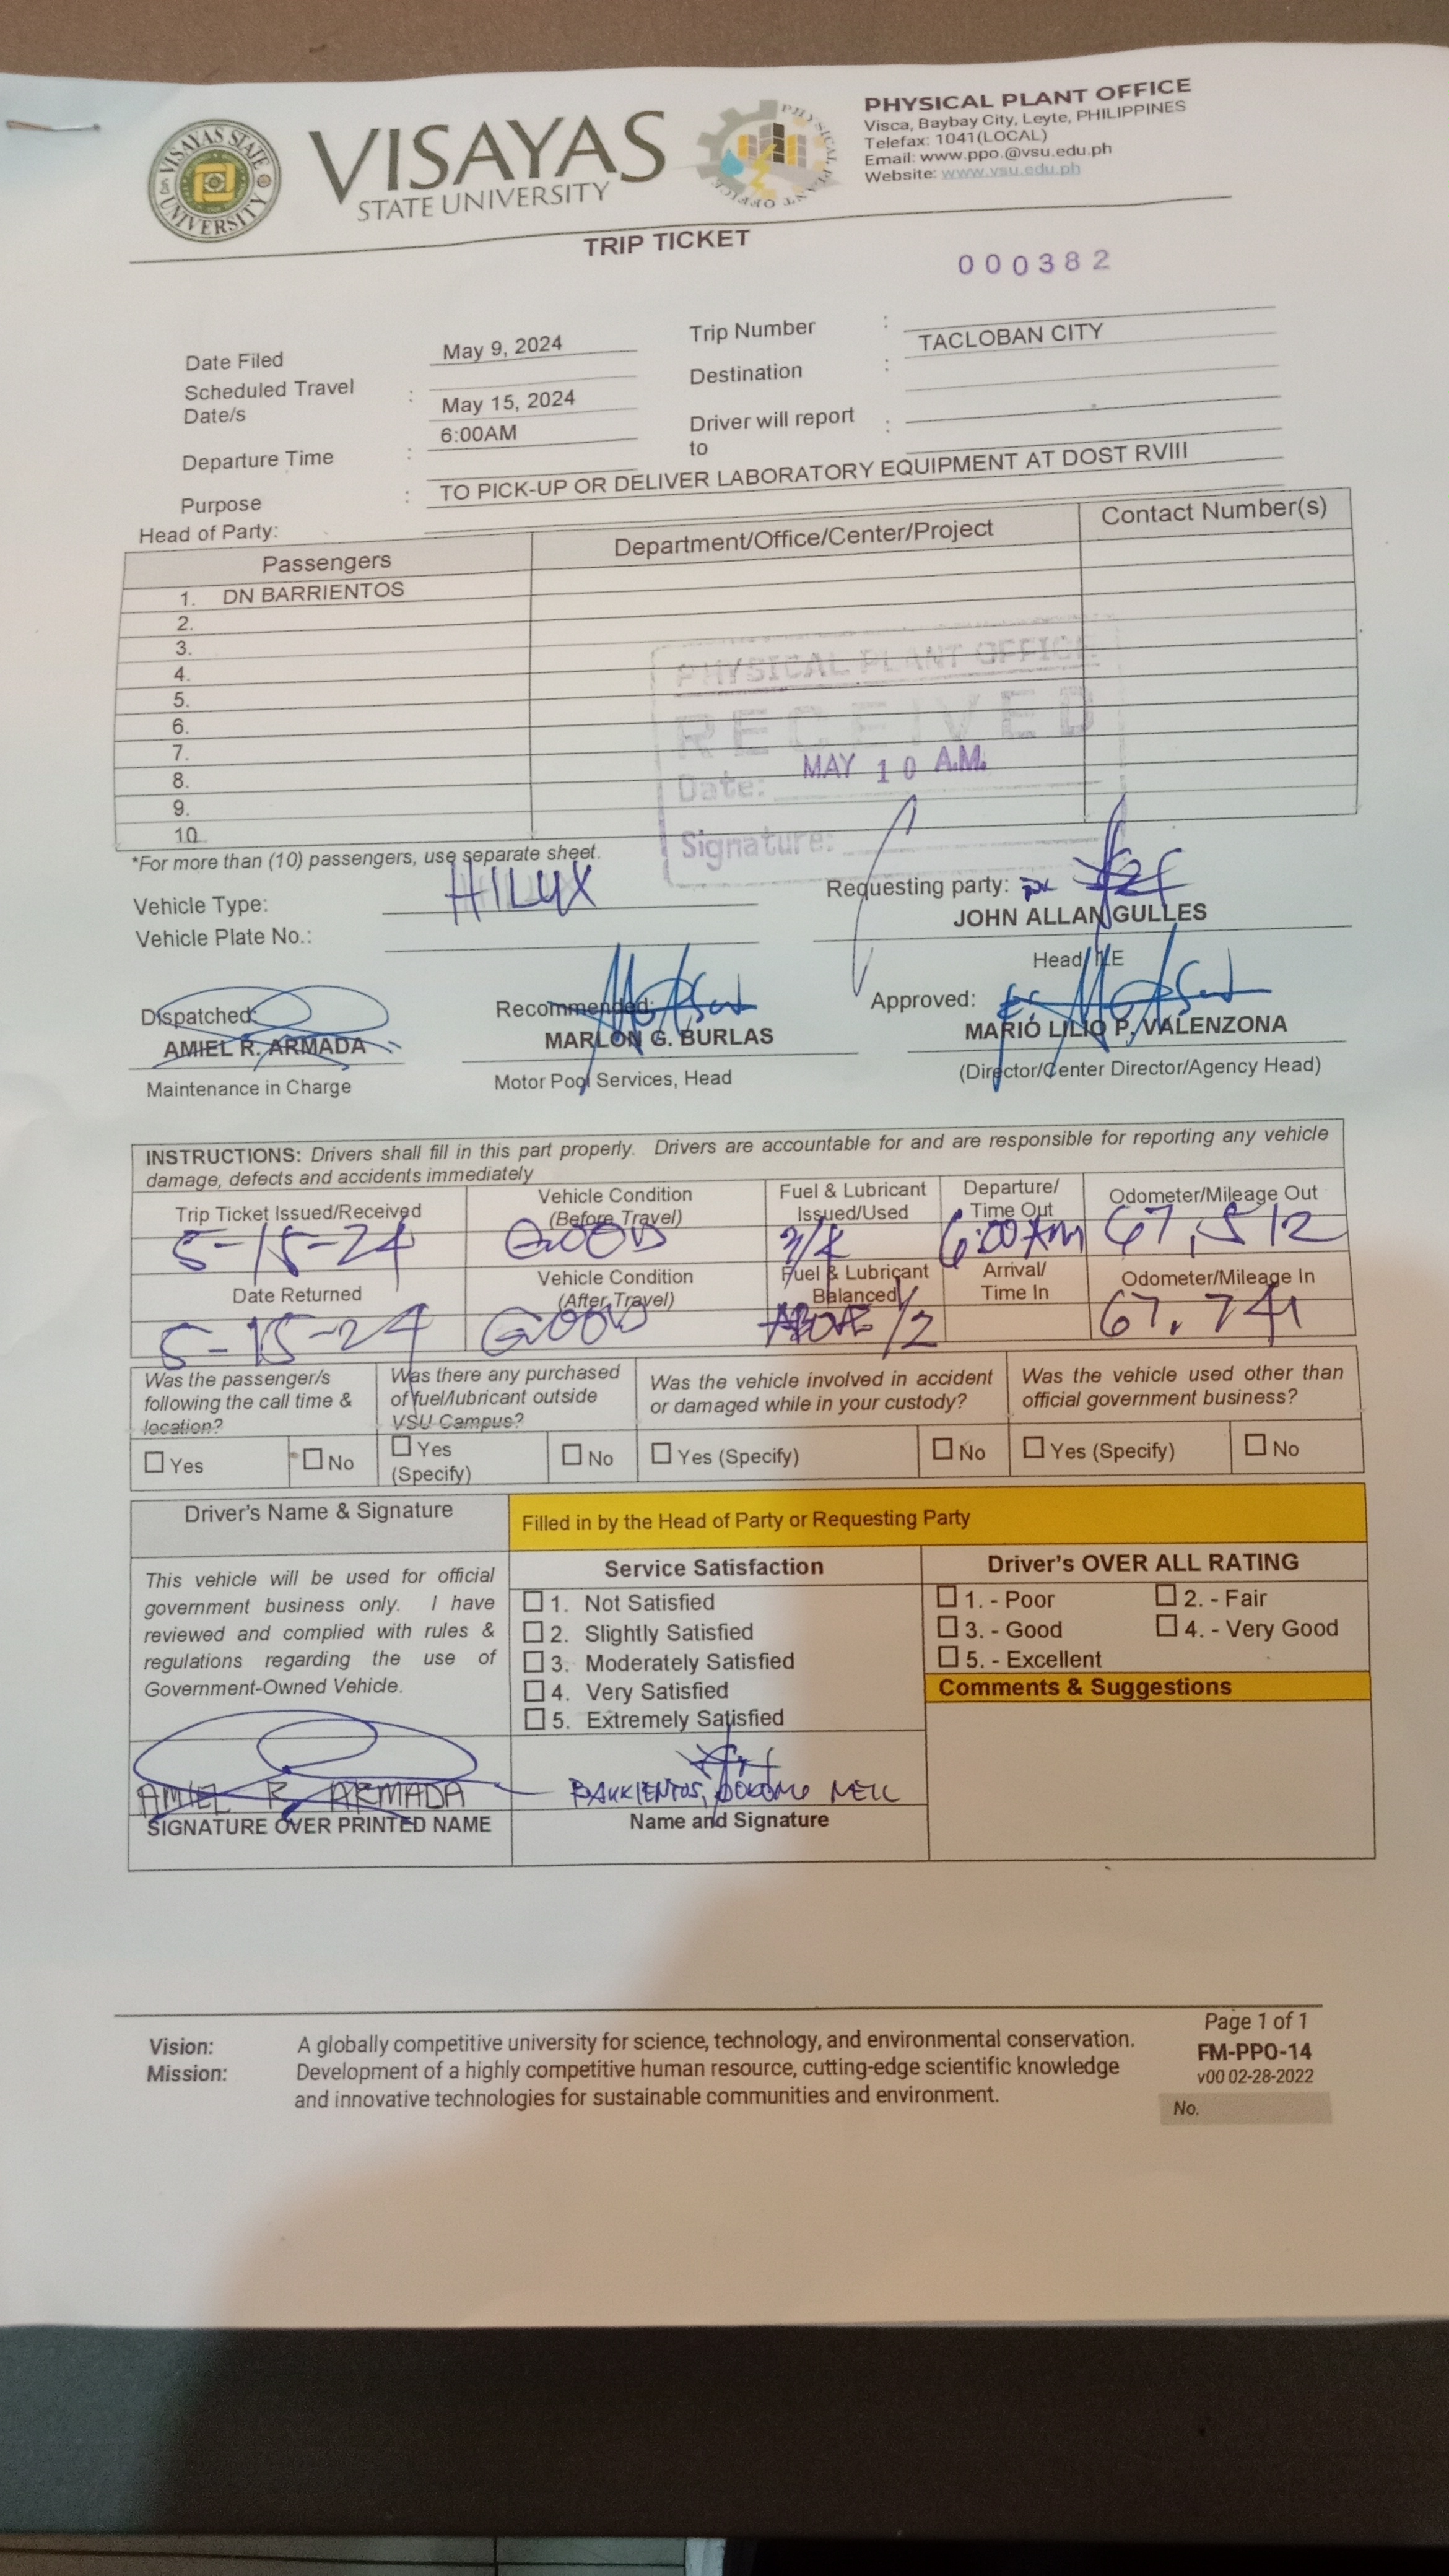 VISAYAS STATE UNIVERSITY
VISAYAS
STATE UNIVERSITY
PHYSICAL PLANT OFFICE
PHYSICAL PLANT OFFICE
Visca, Baybay City, Leyte, PHILIPPINES
Telefax: 1041(LOCAL)
Email: www.ppo.@vsu.edu.ph
Website: www.vsu.edu.ph
TRIP TICKET
000382
Date Filed May 9, 2024 Trip Number :
Scheduled Travel Date/s : May 15, 2024 Destination : TACLOBAN CITY
Departure Time : 6:00AM Driver will report to :
Purpose : TO PICK-UP OR DELIVER LABORATORY EQUIPMENT AT DOST RVIII
Head of Party:
Passengers Department/Office/Center/Project Contact Number(s)
1. DN BARRIENTOS
2.
3.
4.
5.
6.
7.
8.
9.
10.
PHYSICAL PLANT OFFICE
RECEIVED
Date: MAY 10 A.M.
Signature:
*For more than (10) passengers, use separate sheet.
Vehicle Type: HILUX
Vehicle Plate No.:
Requesting party:
JOHN ALLAN GULLES
Head,
Dispatched:
AMIEL R. ARMADA
Maintenance in Charge
Recommended:
MARLON G. BURLAS
Motor Pool Services, Head
Approved:
MARIO LILIO P. VALENZONA
(Director/Center Director/Agency Head)
INSTRUCTIONS: Drivers shall fill in this part properly. Drivers are accountable for and are responsible for reporting any vehicle
damage, defects and accidents immediately
Trip Ticket Issued/Received Vehicle Condition (Before Travel) Fuel & Lubricant Issued/Used Departure/ Time Out Odometer/Mileage Out
5-15-24 GOOD 6:00AM 67,512
Date Returned Vehicle Condition (After Travel) Fuel & Lubricant Balanced Arrival/ Time In Odometer/Mileage In
5-15-24 GOOD ABOVE 1/2 67,741
Was the passenger/s following the call time & location?
Was there any purchased of fuel/lubricant outside VSU Campus?
Was the vehicle involved in accident or damaged while in your custody?
Was the vehicle used other than official government business?
Yes No Yes (Specify) No Yes (Specify) No Yes (Specify) No
Driver's Name & Signature
Filled in by the Head of Party or Requesting Party
This vehicle will be used for official
government business only. I have
reviewed and complied with rules &
regulations regarding the use of
Government-Owned Vehicle.
Service Satisfaction
1. Not Satisfied
2. Slightly Satisfied
3. Moderately Satisfied
4. Very Satisfied
5. Extremely Satisfied
Driver's OVER ALL RATING
1. - Poor 2. - Fair
3. - Good 4. - Very Good
5. - Excellent
Comments & Suggestions
AMIEL R. ARMADA
SIGNATURE OVER PRINTED NAME
BARRIENTOS, NEIL
Name and Signature
Vision: A globally competitive university for science, technology, and environmental conservation.
Mission: Development of a highly competitive human resource, cutting-edge scientific knowledge
and innovative technologies for sustainable communities and environment.
Page 1 of 1
FM-PPO-14
v00 02-28-2022
No.